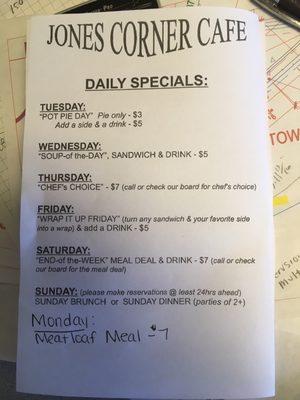 JONES CORNER CAFE
DAILY SPECIALS:
TUESDAY:
"POT PIE DAY" Pie only - $3
Add a side & a drink - $5
WEDNESDAY:
"SOUP-of the-DAY", SANDWICH & DRINK - $5
THURSDAY:
"CHEF's CHOICE" - $7 (call or check our board for chef's choice)
FRIDAY:
"WRAP IT UP FRIDAY" (turn any sandwich & your favorite side
into a wrap) & add a DRINK - $5
SATURDAY:
"END-of the-WEEK" MEAL DEAL & DRINK - $7 (call or check
our board for the meal deal)
SUNDAY: (please make reservations @ least 24hrs ahead)
SUNDAY BRUNCH or SUNDAY DINNER (parties of 2+)
Monday:
Meatloaf Meal - $7
TOW